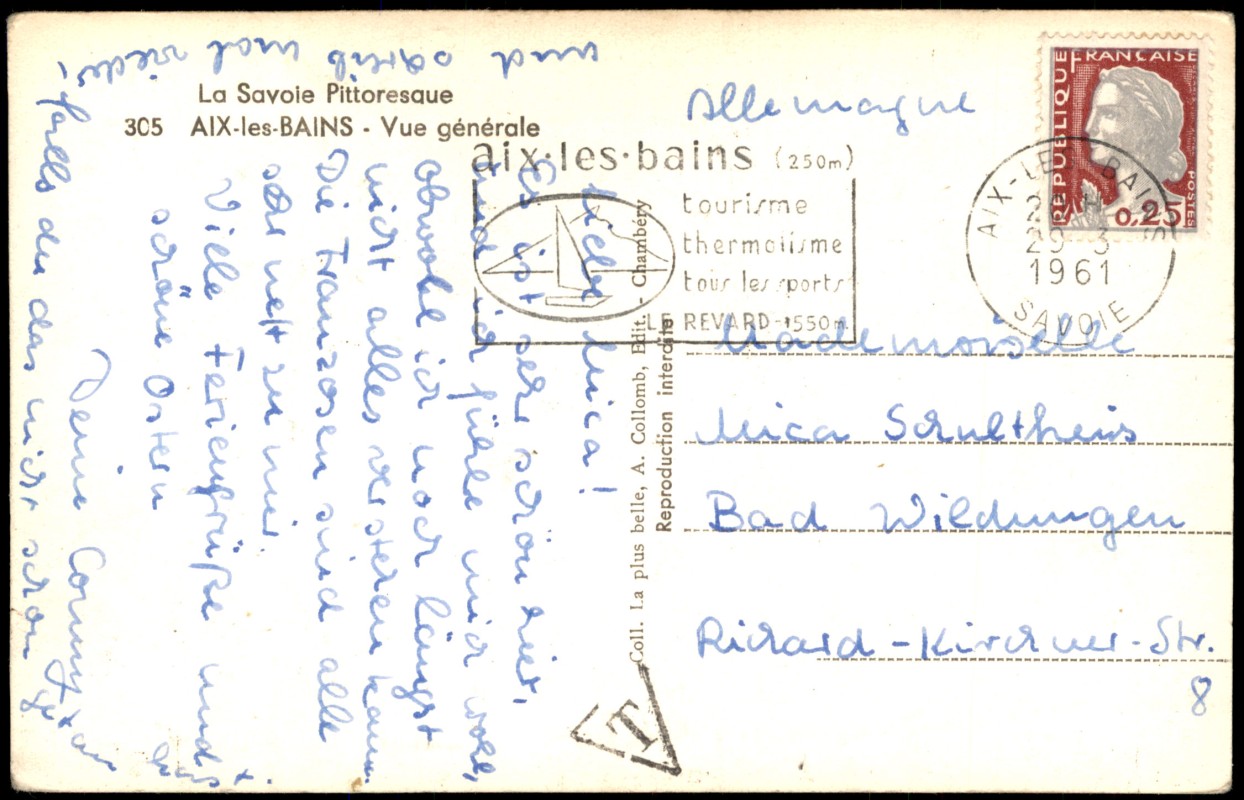 La Savoie Pittoresque
305 AIX-les-BAINS - Vue générale
aix·les·bains (250m)
tourisme
thermalisme
tous les sports
LE REVARD-1550m
RÉPUBLIQUE FRANÇAISE
POSTES
0,25
AIX-LES-BAINS
29-3
1961
SAVOIE
Allemagne
Mademoiselle
Mica Schultheis
Bad Wildungen
Richard-Kirchner-Str.
8
Coll. La plus belle, A. Collomb, Edit. - Chambéry
Reproduction interdite
T
Liebe Mica!
Es ist sehr schön hier,
und ich fühle mich wohl,
obwohl ich noch längst
nicht alles verstehen kann.
Die Franzosen sind alle
sehr nett zu mir.
Viele Feriengrüße und
schöne Ostern
Deine Conny
falls du das nicht schon
und schreib mal wieder,